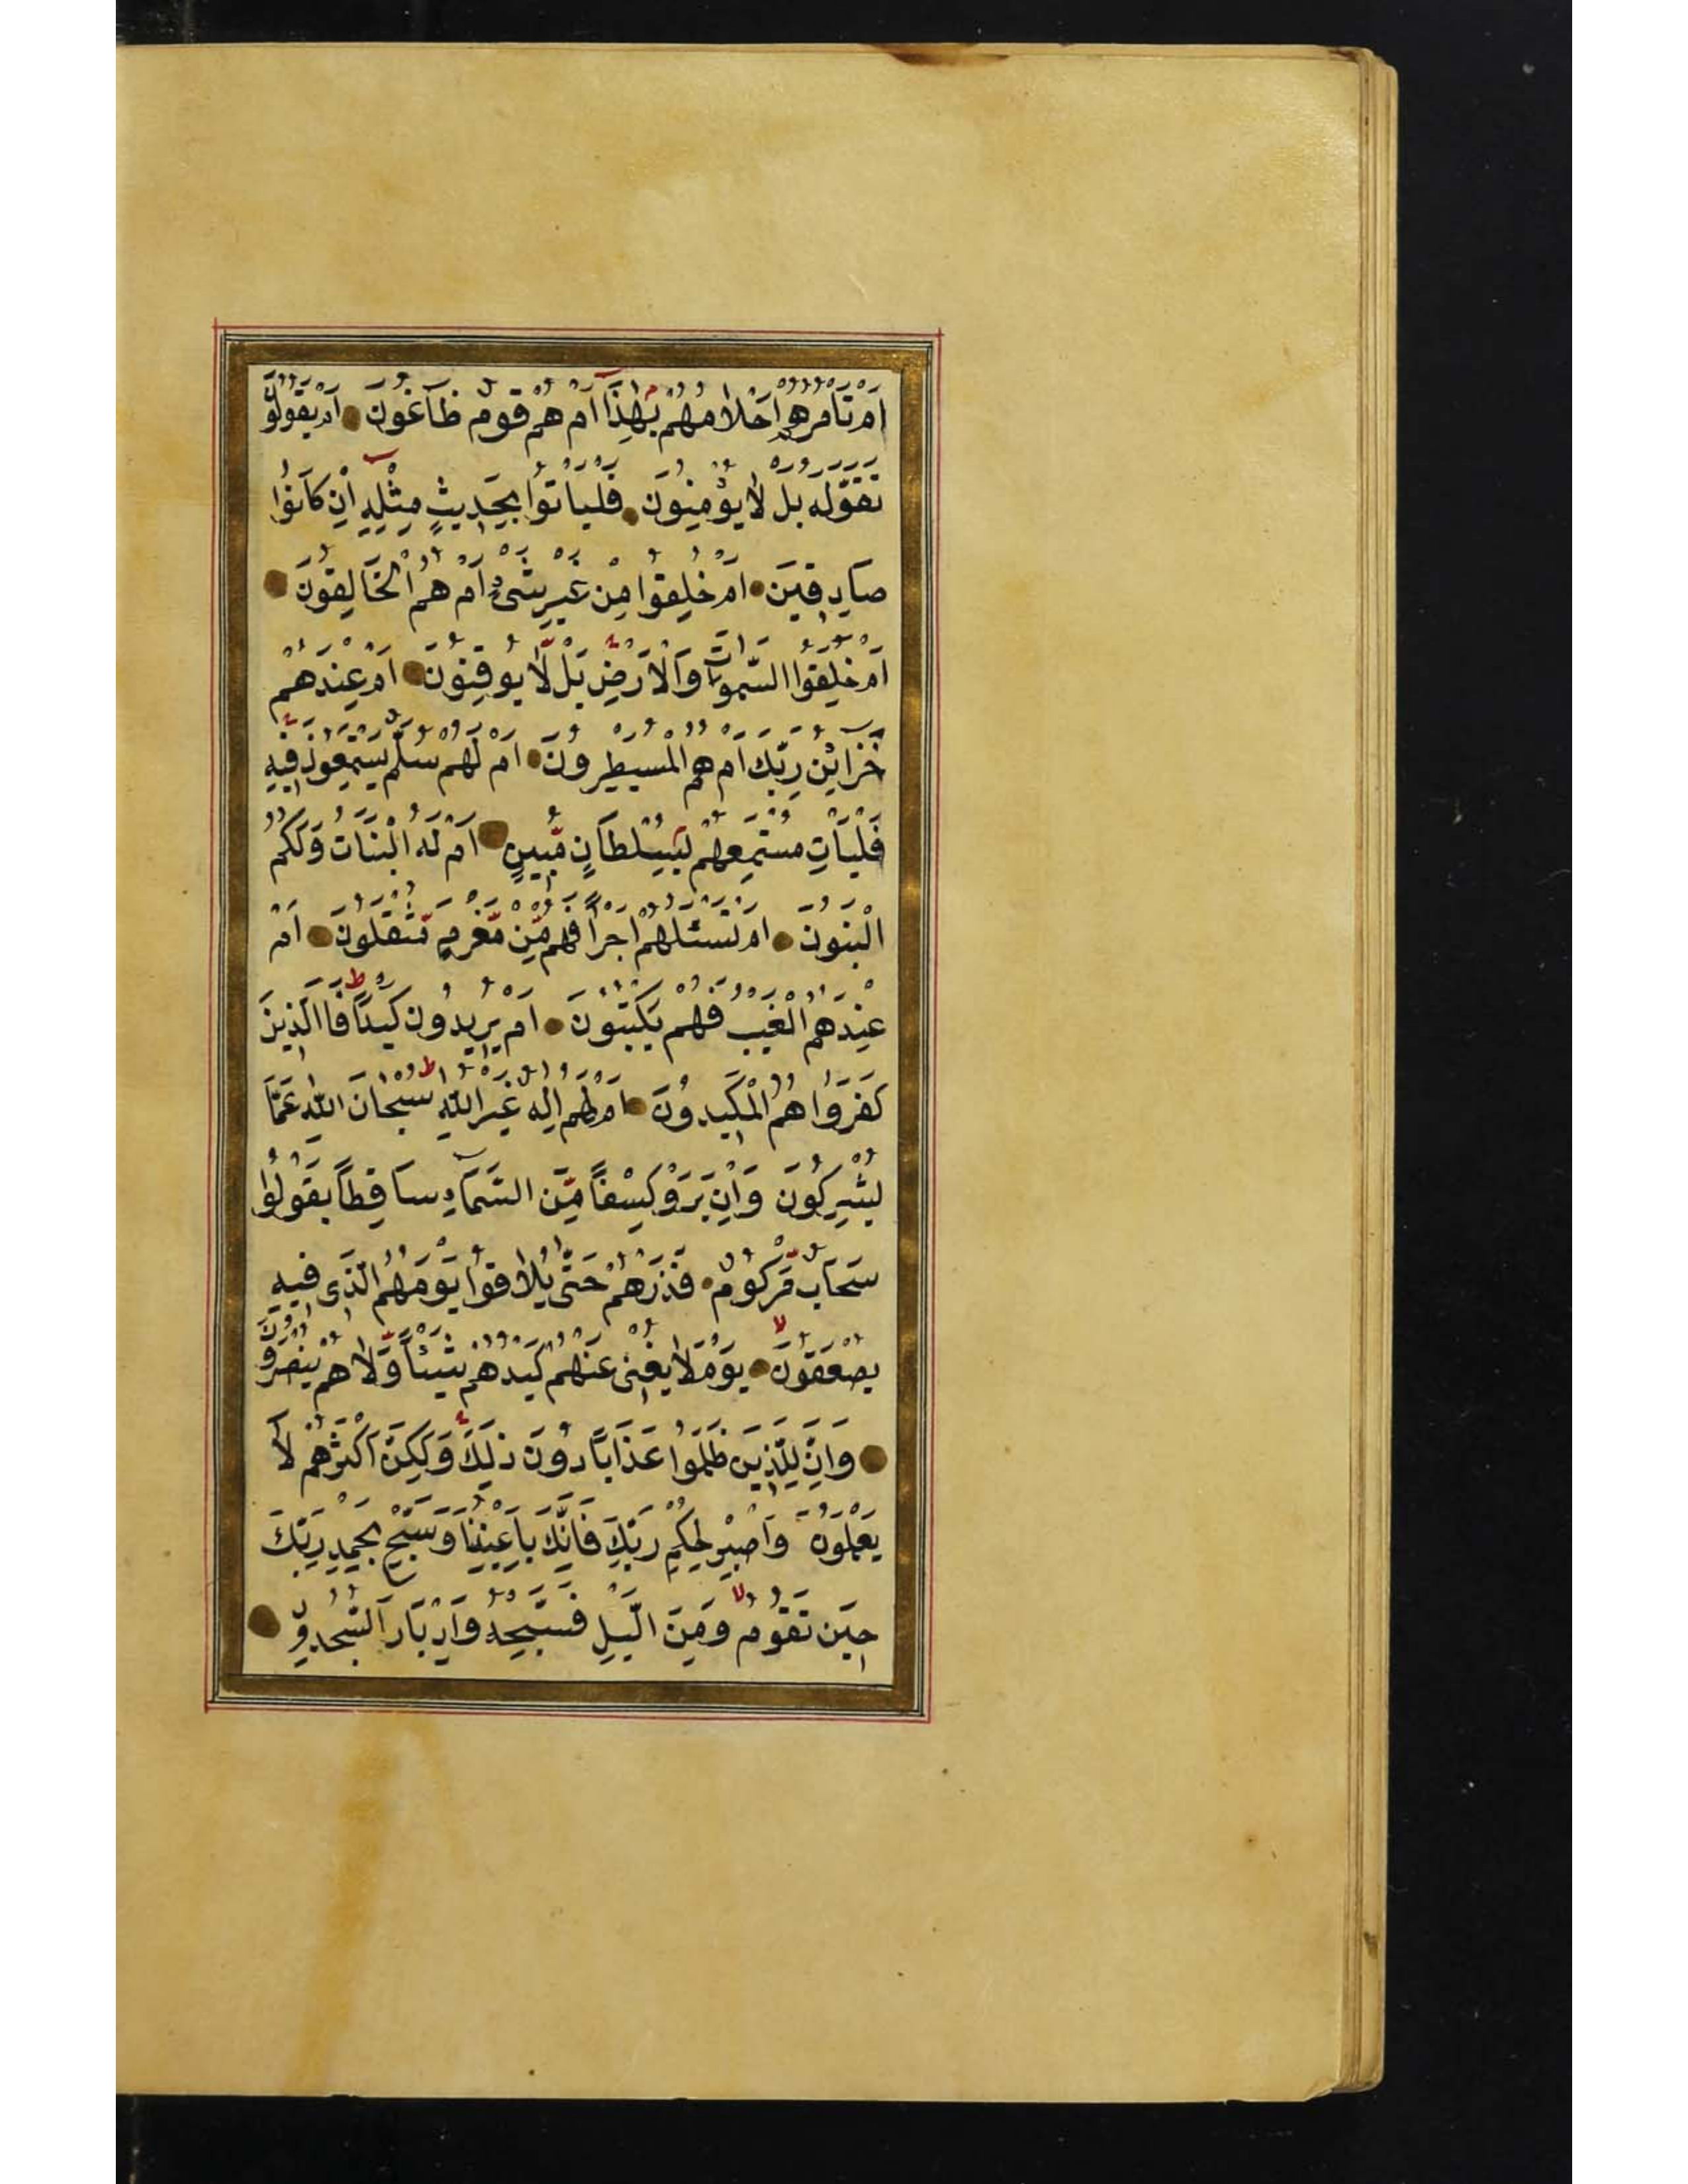 اَمْ تَاْمُرُهُمْ اَحْلَامُهُمْ بِهٰذَا اَمْ هُمْ قَوْمٌ طَاغُونَ اَمْ يَقُولُونَ
تَقَوَّلَهُ بَلْ لَا يُؤْمِنُونَ فَلْيَاْتُوا بِحَدِيثٍ مِثْلِهِ اِنْ كَانُوا
صَادِقِينَ اَمْ خُلِقُوا مِنْ غَيْرِ شَىْءٍ اَمْ هُمُ الْخَالِقُونَ
اَمْ خَلَقُوا السَّمٰوَاتِ وَالْاَرْضَ بَلْ لَّا يُوقِنُونَ اَمْ عِنْدَهُمْ
خَزَائِنُ رَبِّكَ اَمْ هُمُ الْمُسَيْطِرُونَ اَمْ لَهُمْ سُلَّمٌ يَسْتَمِعُونَ فِيهِ
فَلْيَاْتِ مُسْتَمِعُهُمْ بِسُلْطَانٍ مُّبِينٍ اَمْ لَهُ الْبَنَاتُ وَلَكُمُ
الْبَنُونَ اَمْ تَسْئَلُهُمْ اَجْرًا فَهُمْ مِّنْ مَّغْرَمٍ مُّثْقَلُونَ اَمْ
عِنْدَهُمُ الْغَيْبُ فَهُمْ يَكْتُبُونَ اَمْ يُرِيدُونَ كَيْدًا فَاالَّذِينَ
كَفَرُوا هُمُ الْمَكِيدُونَ اَمْ لَهُمْ اِلٰهٌ غَيْرُ اللّٰهِ سُبْحَانَ اللّٰهِ عَمَّا
يُشْرِكُونَ وَاِنْ يَرَوْ كِسْفًا مِّنَ السَّمَاءِ سَاقِطًا يَقُولُوا
سَحَابٌ مَّرْكُومٌ فَذَرْهُمْ حَتّٰى يُلَاقُوا يَوْمَهُمُ الَّذِى فِيهِ
يُصْعَقُونَ يَوْمَ لَا يُغْنِى عَنْهُمْ كَيْدُهُمْ شَيْئًا وَّلَا هُمْ يُنْصَرُونَ
وَاِنَّ لِلَّذِينَ ظَلَمُوا عَذَابًا دُونَ ذٰلِكَ وَلٰكِنَّ اَكْثَرَهُمْ لَا
يَعْلَمُونَ وَاصْبِرْ لِحُكْمِ رَبِّكَ فَاِنَّكَ بِاَعْيُنِنَا وَسَبِّحْ بِحَمْدِ رَبِّكَ
حِينَ تَقُومُ وَمِنَ الَّيْلِ فَسَبِّحْهُ وَاِدْبَارَ السُّجُودِ